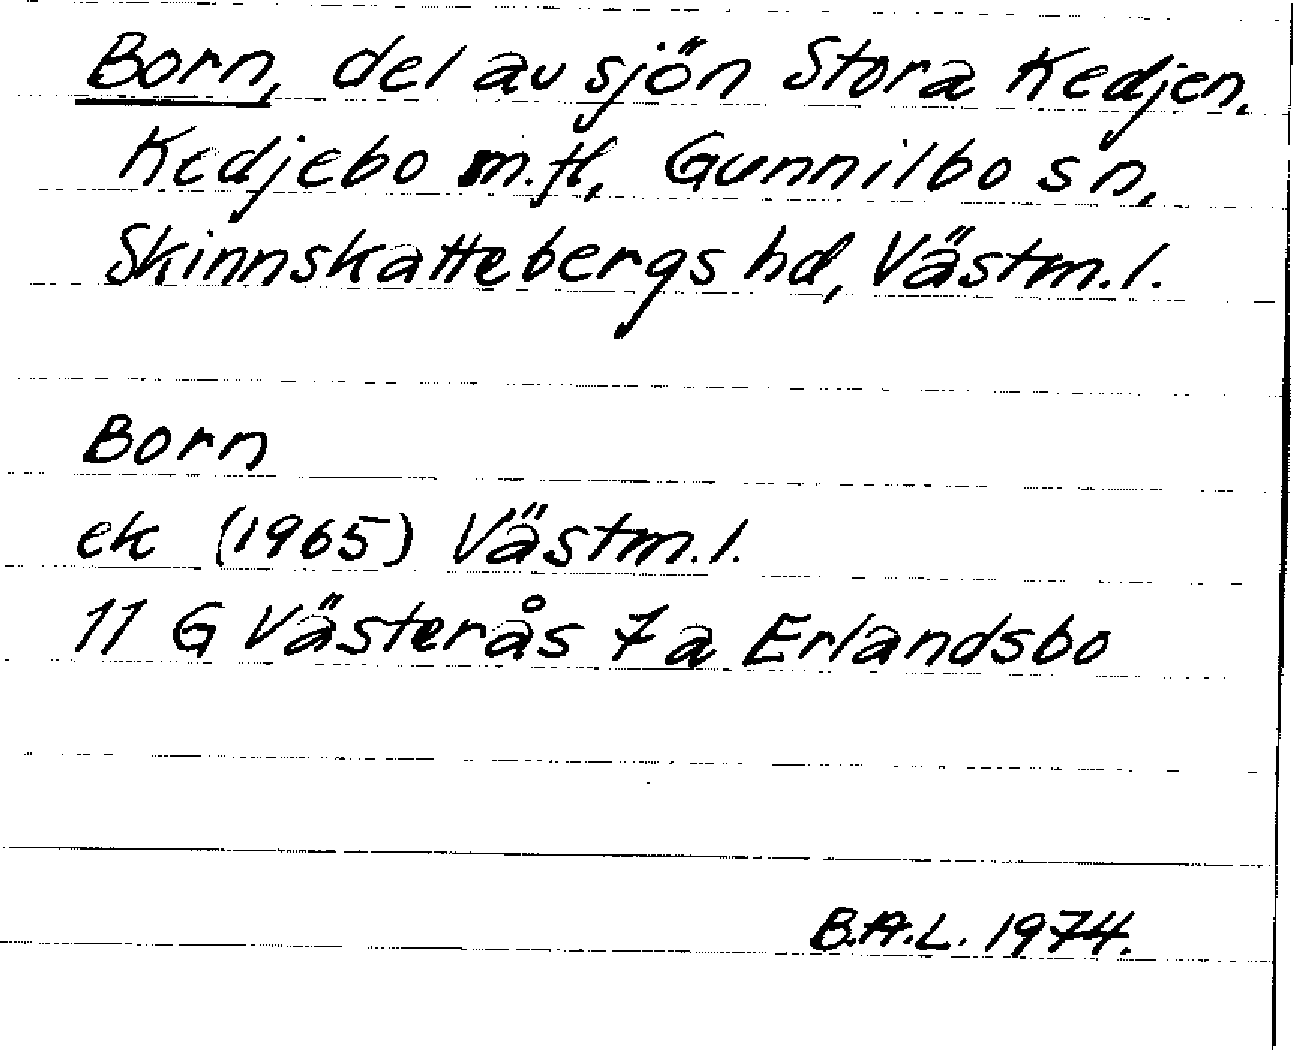 Born, del av sjön Stora Kedjen,
Kedjebo m.fl., Gunnilbo sn,
Skinnskattebergs hd, Västm.l.
Born
ek (1965) Västm.l.
11 G Västerås 7a Erlandsbo
B.A.L. 1974.